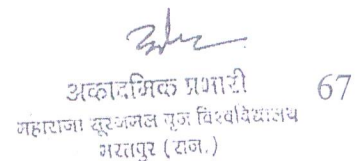 अकादमिक प्रभारी 67
महाराजा सूरजमल बृज विश्वविद्यालय
भरतपुर (राज.)